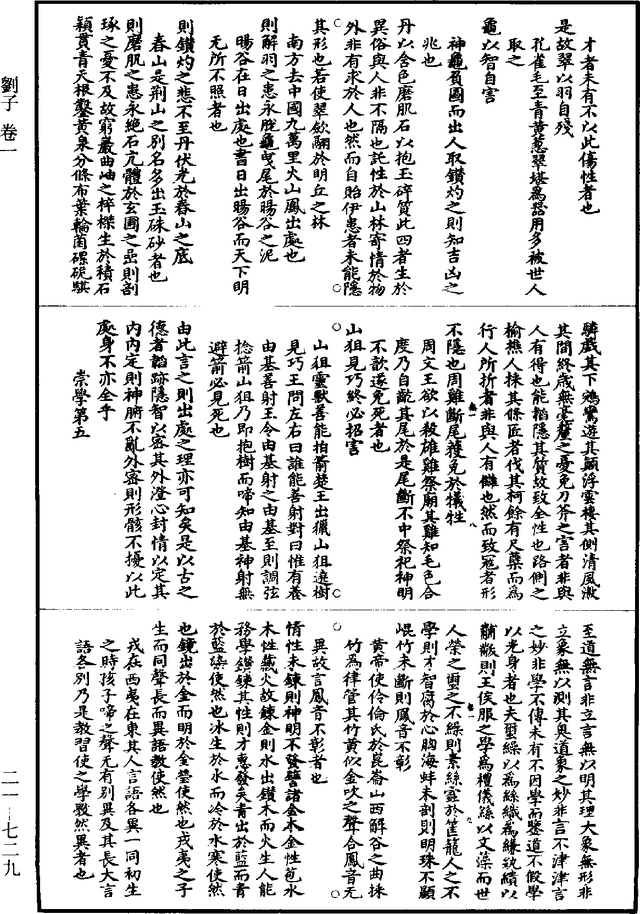 劉子 卷一
才者未有不以此傷性者也
是故翠以羽自殘
孔雀毛至青黃蔥翠堪為器用多被世人
取之
龜以智自害
神龜負圖而出人取鑽灼之則知吉凶之
兆也
丹以含色磨肌石以抱玉碎質此四者生於
異俗與人非不隔也託性於山林寄情於物
外非有求於人也然而自貽伊患者未能隱
其形也若使翠斂翮於明丘之林
南方去中國九萬里火山鳳出處也
則解羽之患永脫龜曳尾於暘谷之泥
暘谷在日出處也書日出暘谷而天下明
无所不照者也
則鑽灼之悲不至丹伏光於舂山之底
舂山是荆山之別名多出玉硃砂者也
則磨肌之患永絕石亢體於玄圃之嵒則剖
琢之憂不及故窮巖曲岫之梓橖生於積石
穎貫青天根鑿黃泉分條布葉輪菌磥硊騏
驎戲其下鵷鸞遊其顛浮雲棲其側清風激
其間終歲無毫釐之憂免刀斧之害者非與
人有得也能韜隱其質故致全性也路側之
榆樵人採其條匠者伐其柯餘有尺蘗而為
行人所折者非與人有讎也然而致寇者形
不隱也周雞斷尾獲免於犧牲
周文王欲以殺雄雞祭廟其雞知毛色合
度乃自齕其尾於是尾斷不中祭祀神明
不歆遂免死者也
山狙見巧終必招害
山狙靈獸善能拍箭楚王出獵山狙遶樹
見巧王問左右曰誰能善射對曰惟有養
由基善射王令由基射之由基至則調弦
捻箭山狙乃即抱樹而啼知由基神射無
避箭必見死也
由此言之則出處之理亦可知矣是以古之
德者韜跡隱智以密其外澄心封情以定其
內內定則神腑不亂外密則形骸不擾以此
處身不亦全乎
崇學第五
至道無言非立言無以明其理大象無形非
立象無以測其奥道象之妙非言不津津言
之妙非學不傳未有不因學而鑒道不假學
以光身者也夫璽繰以為絲織為縑紈繢以
黼黻則王侯服之學為禮儀絲以文藻而世
人榮之璽之不繰則素絲蠹於筐籠人之不
學則才智腐於心胸海蚌未剖則明珠不顯
崐竹未斷則鳳音不彰
黃帝使伶倫氏於崑崙山西解谷之曲採
竹為律管其竹黃似金吹之聲合鳳音无
異故言鳳音不彰者也
情性未鍊則神明不發譬諸金木金性苞水
木性藏火故鍊金則水出鑽木而火生人能
務學鑽鍊其性則才惠發矣青出於藍而青
於藍染使然也冰生於水而冷於水寒使然
也鏡出於金而明於金瑩使然也戎夷之子
生而同聲長而異語教使然也
戎在西夷在東其人言語各異一同初生
之時孩子啼之聲无有別異及其長大言
語各別乃是教習使之學斅然異者也
二一—七二九